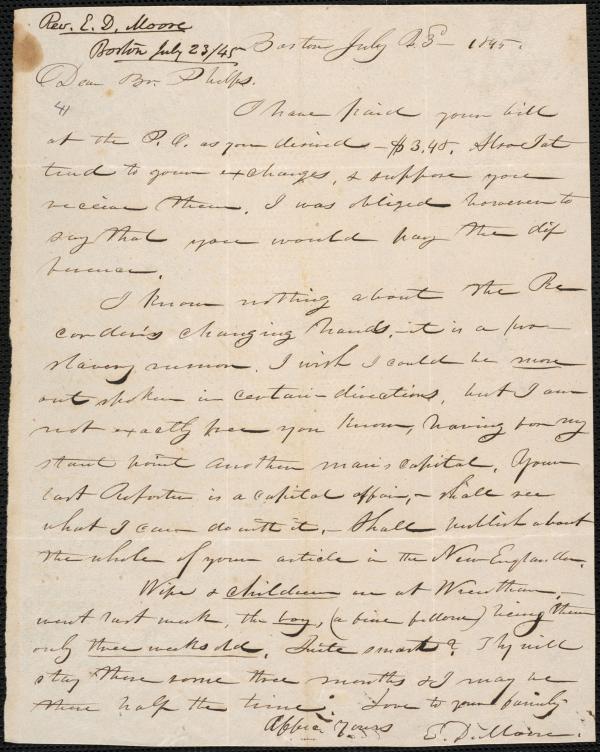 Rev. E. D. Moore
Boston July 23/45
Boston July 23d 1845.
Dear Br. Phelps.
41
I have paid your bill
at the P. O. as you desired - $3,48. Also I at
tend to your exchanges, & suppose you
receive them. I was obliged however to
say that you would pay the dif
ference.
I know nothing about the Re
corder's changing hands, - it is a pro
slavery rumor. I wish I could be more
out spoken in certain directions, but I am
not exactly free you know, having for my
stand point another man's capital. Your
last Reporter is a capital affair, - shall see
what I can do with it. - Shall publish about
the whole of your article in the New Englander.
Wife & children are at Wrentham,
went last week, the boy, (a fine fellow) being then
only three weeks old. Quite smart? They will
stay there some three months & I may be
there half the time. Love to your family
Affec. Yours
E. D. Moore.